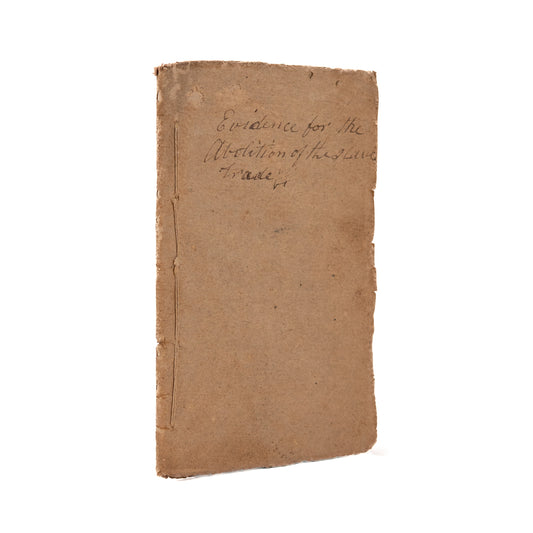 Evidence for the
Abolition of the Slave
trade